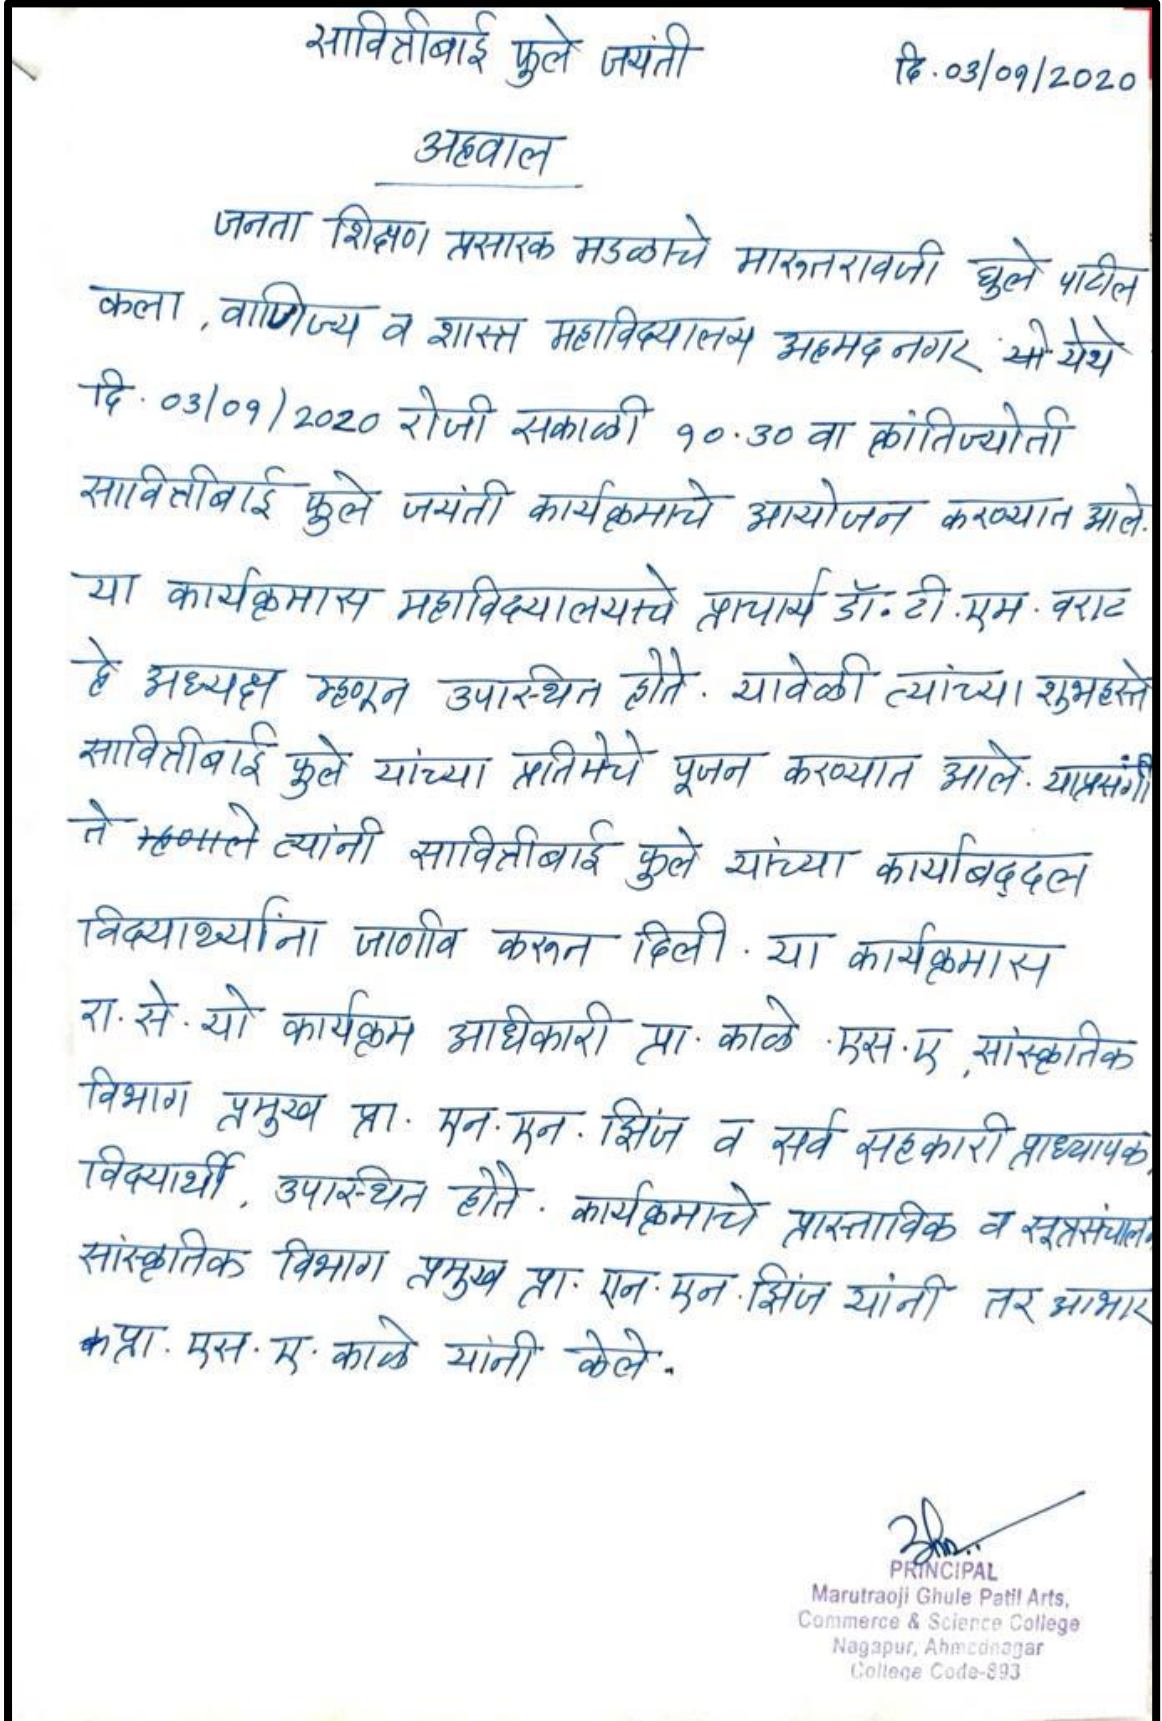 सावित्रीबाई फुले जयंती
दि. 03/०१/2020
अहवाल
जनता शिक्षण प्रसारक मडळाचे मारूतरावजी घुले पाटील
कला, वाणिज्य व शास्त्र महाविद्यालय अहमदनगर येथे
दि. 03/०१/2020 रोजी सकाळी १०.30 वा क्रांतिज्योती
सावित्रीबाई फुले जयंती कार्यक्रमाचे आयोजन करण्यात आले.
या कार्यक्रमास महाविद्यालयाचे प्राचार्य डॉ. टी. एम. वराट
हे अध्यक्ष म्हणून उपास्थित होते. यावेळी त्यांच्या शुभहस्ते
सावित्रीबाई फुले यांच्या प्रतिमेचे पूजन करण्यात आले. याप्रसंगी
ते म्हणाले त्यांनी सावित्रीबाई फुले यांच्या कार्याबद्दल
विद्यार्थ्यांना जाणीव करून दिली. या कार्यक्रमास
रा. से. यो कार्यक्रम आधिकारी प्रा. काळे .एस.ए, सांस्कृतिक
विभाग प्रमुख प्रा. एन. एन. झिंज व सर्व सहकारी प्राध्यापक,
विद्यार्थी, उपास्थित होते. कार्यक्रमाचे प्रास्ताविक व सूत्रसंचालन
सांस्कृतिक विभाग प्रमुख प्रा. एन. एन. झिंज यांनी तर आभार
प्रा. एस. ए. काळे यांनी केले.
PRINCIPAL
Marutraoji Ghule Patil Arts,
Commerce & Science College
Nagapur, Ahmednagar
College Code-893